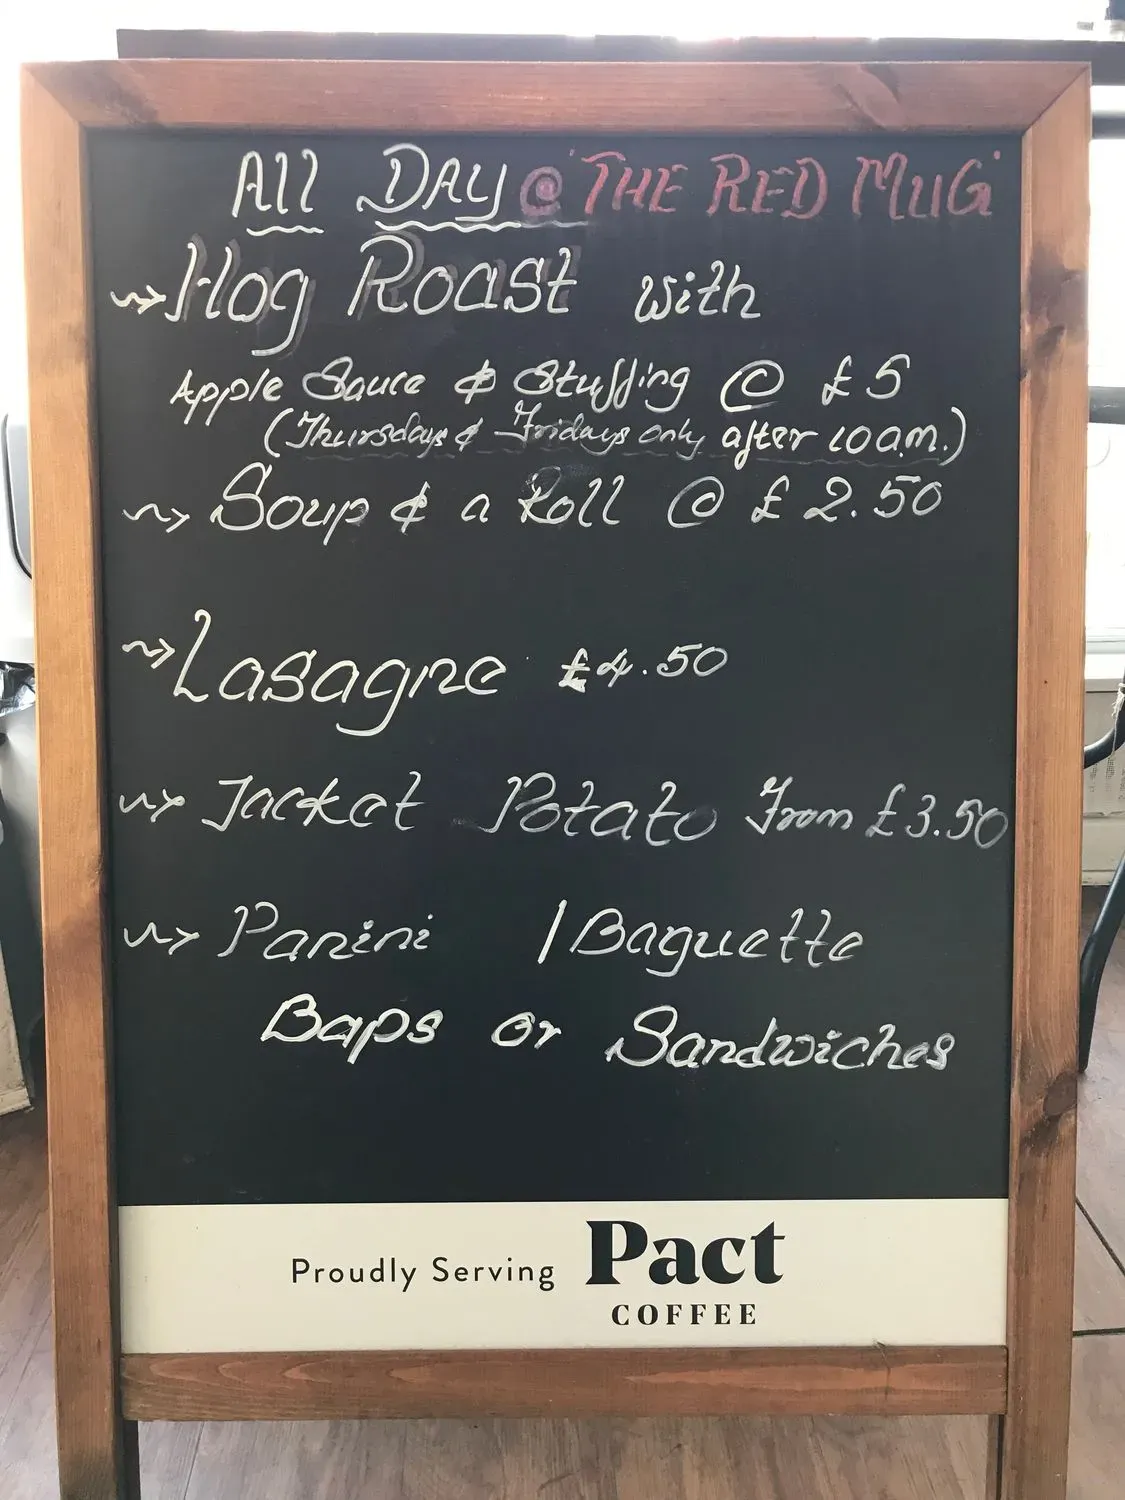 All DAY @ "THE RED MUG"
~> Hog Roast with
Apple Sauce & Stuffing @ £5
(Thursdays & Fridays only after 10 a.m.)
~> Soup & a Roll @ £2.50
~> Lasagne £4.50
~> Jacket Potato From £3.50
~> Panini / Baguette
Baps or Sandwiches
Proudly Serving Pact
COFFEE